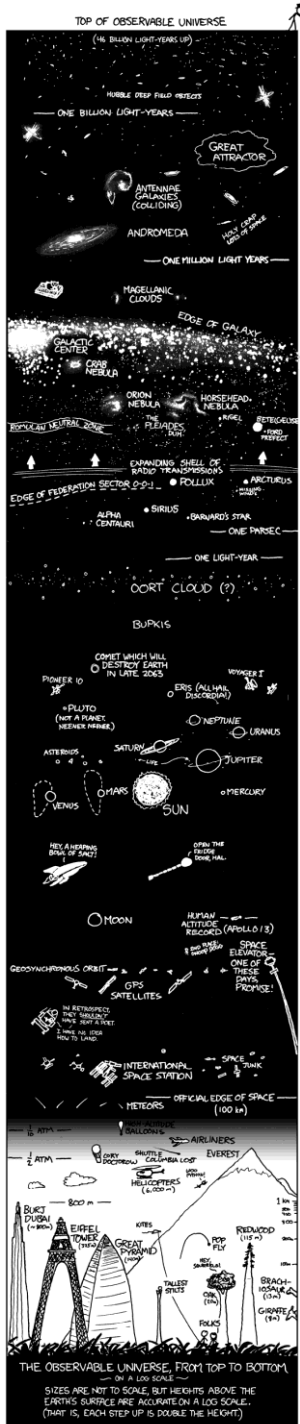 TOP OF OBSERVABLE UNIVERSE
(46 BILLION LIGHT-YEARS UP)
HUBBLE DEEP FIELD OBJECTS
ONE BILLION LIGHT-YEARS
GREAT
ATTRACTOR
ANTENNAE
GALAXIES
(COLLIDING)
ANDROMEDA
HOLY CRAP
LOTS OF SPACE
ONE MILLION LIGHT YEARS
MAGELLANIC
CLOUDS
EDGE OF GALAXY
GALACTIC
CENTER
CRAB
NEBULA
ORION
NEBULA
HORSEHEAD
NEBULA
ROMULAN NEUTRAL ZONE
THE
PLEIADES,
DUH.
RIGEL
BETELGEUSE
FORD
PREFECT
EXPANDING SHELL OF
RADIO TRANSMISSIONS
EDGE OF FEDERATION SECTOR 0-0-1
POLLUX
ARCTURUS
SIRIUS
ALPHA
CENTAURI
BARNARD'S STAR
ONE PARSEC
ONE LIGHT-YEAR
OORT CLOUD (?)
BUPKIS
COMET WHICH WILL
DESTROY EARTH
IN LATE 2063
PIONEER 10
VOYAGER I
ERIS (ALL HAIL
DISCORDIA!)
PLUTO
(NOT A PLANET.
NEENER NEENER)
NEPTUNE
URANUS
SATURN
ASTEROIDS
LIFE
JUPITER
VENUS
MARS
SUN
MERCURY
HEY, A HEAPING
BOWL OF SALT!
OPEN THE
FRIDGE
DOOR, HAL.
MOON
HUMAN
ALTITUDE
RECORD (APOLLO 13)
SPACE
ELEVATOR—
ONE OF
THESE
DAYS,
PROMISE!
GEOSYNCHRONOUS ORBIT
GPS
SATELLITES
IN RETROSPECT,
THEY SHOULDN'T
HAVE SENT A POET.
I HAVE NO IDEA
HOW TO LAND.
INTERNATIONAL
SPACE STATION
SPACE
JUNK
METEORS
OFFICIAL EDGE OF SPACE
(100 km)
HIGH-ALTITUDE
BALLOONS
1/16 ATM
AIRLINERS
1/2 ATM
CORY
DOCTOROW
SHUTTLE
COLUMBIA LOST
EVEREST
HELICOPTERS
(6,000 m)
800 m
1 km
BURJ
DUBAI
EIFFEL
TOWER
GREAT
PYRAMID
KITES
POP
FLY
REDWOOD
(115 m)
TALLEST
STILTS
HEY,
SQUIRRELS!
OAK
BRACH-
IOSAUR
(13m)
GIRAFFE
FOLKS
THE OBSERVABLE UNIVERSE, FROM TOP TO BOTTOM
ON A LOG SCALE
SIZES ARE NOT TO SCALE, BUT HEIGHTS ABOVE THE
EARTH'S SURFACE ARE ACCURATE ON A LOG SCALE.
(THAT IS, EACH STEP UP IS DOUBLE THE HEIGHT.)